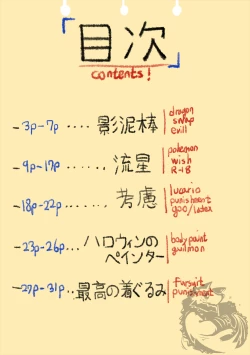 「目次」
contents!
-3p-7p ····· 影泥棒
dragon
swap
evill
-9p-17p ····· 流星
pokemon
wish
R-18
-18p-22p ····· 考慮
lucario
punishment
goo/latex
-23p-26p... ハロウィンの
ペインター
body paint
guilmon
-27p-31p.. 最高の着ぐるみ
fursuit
punishment